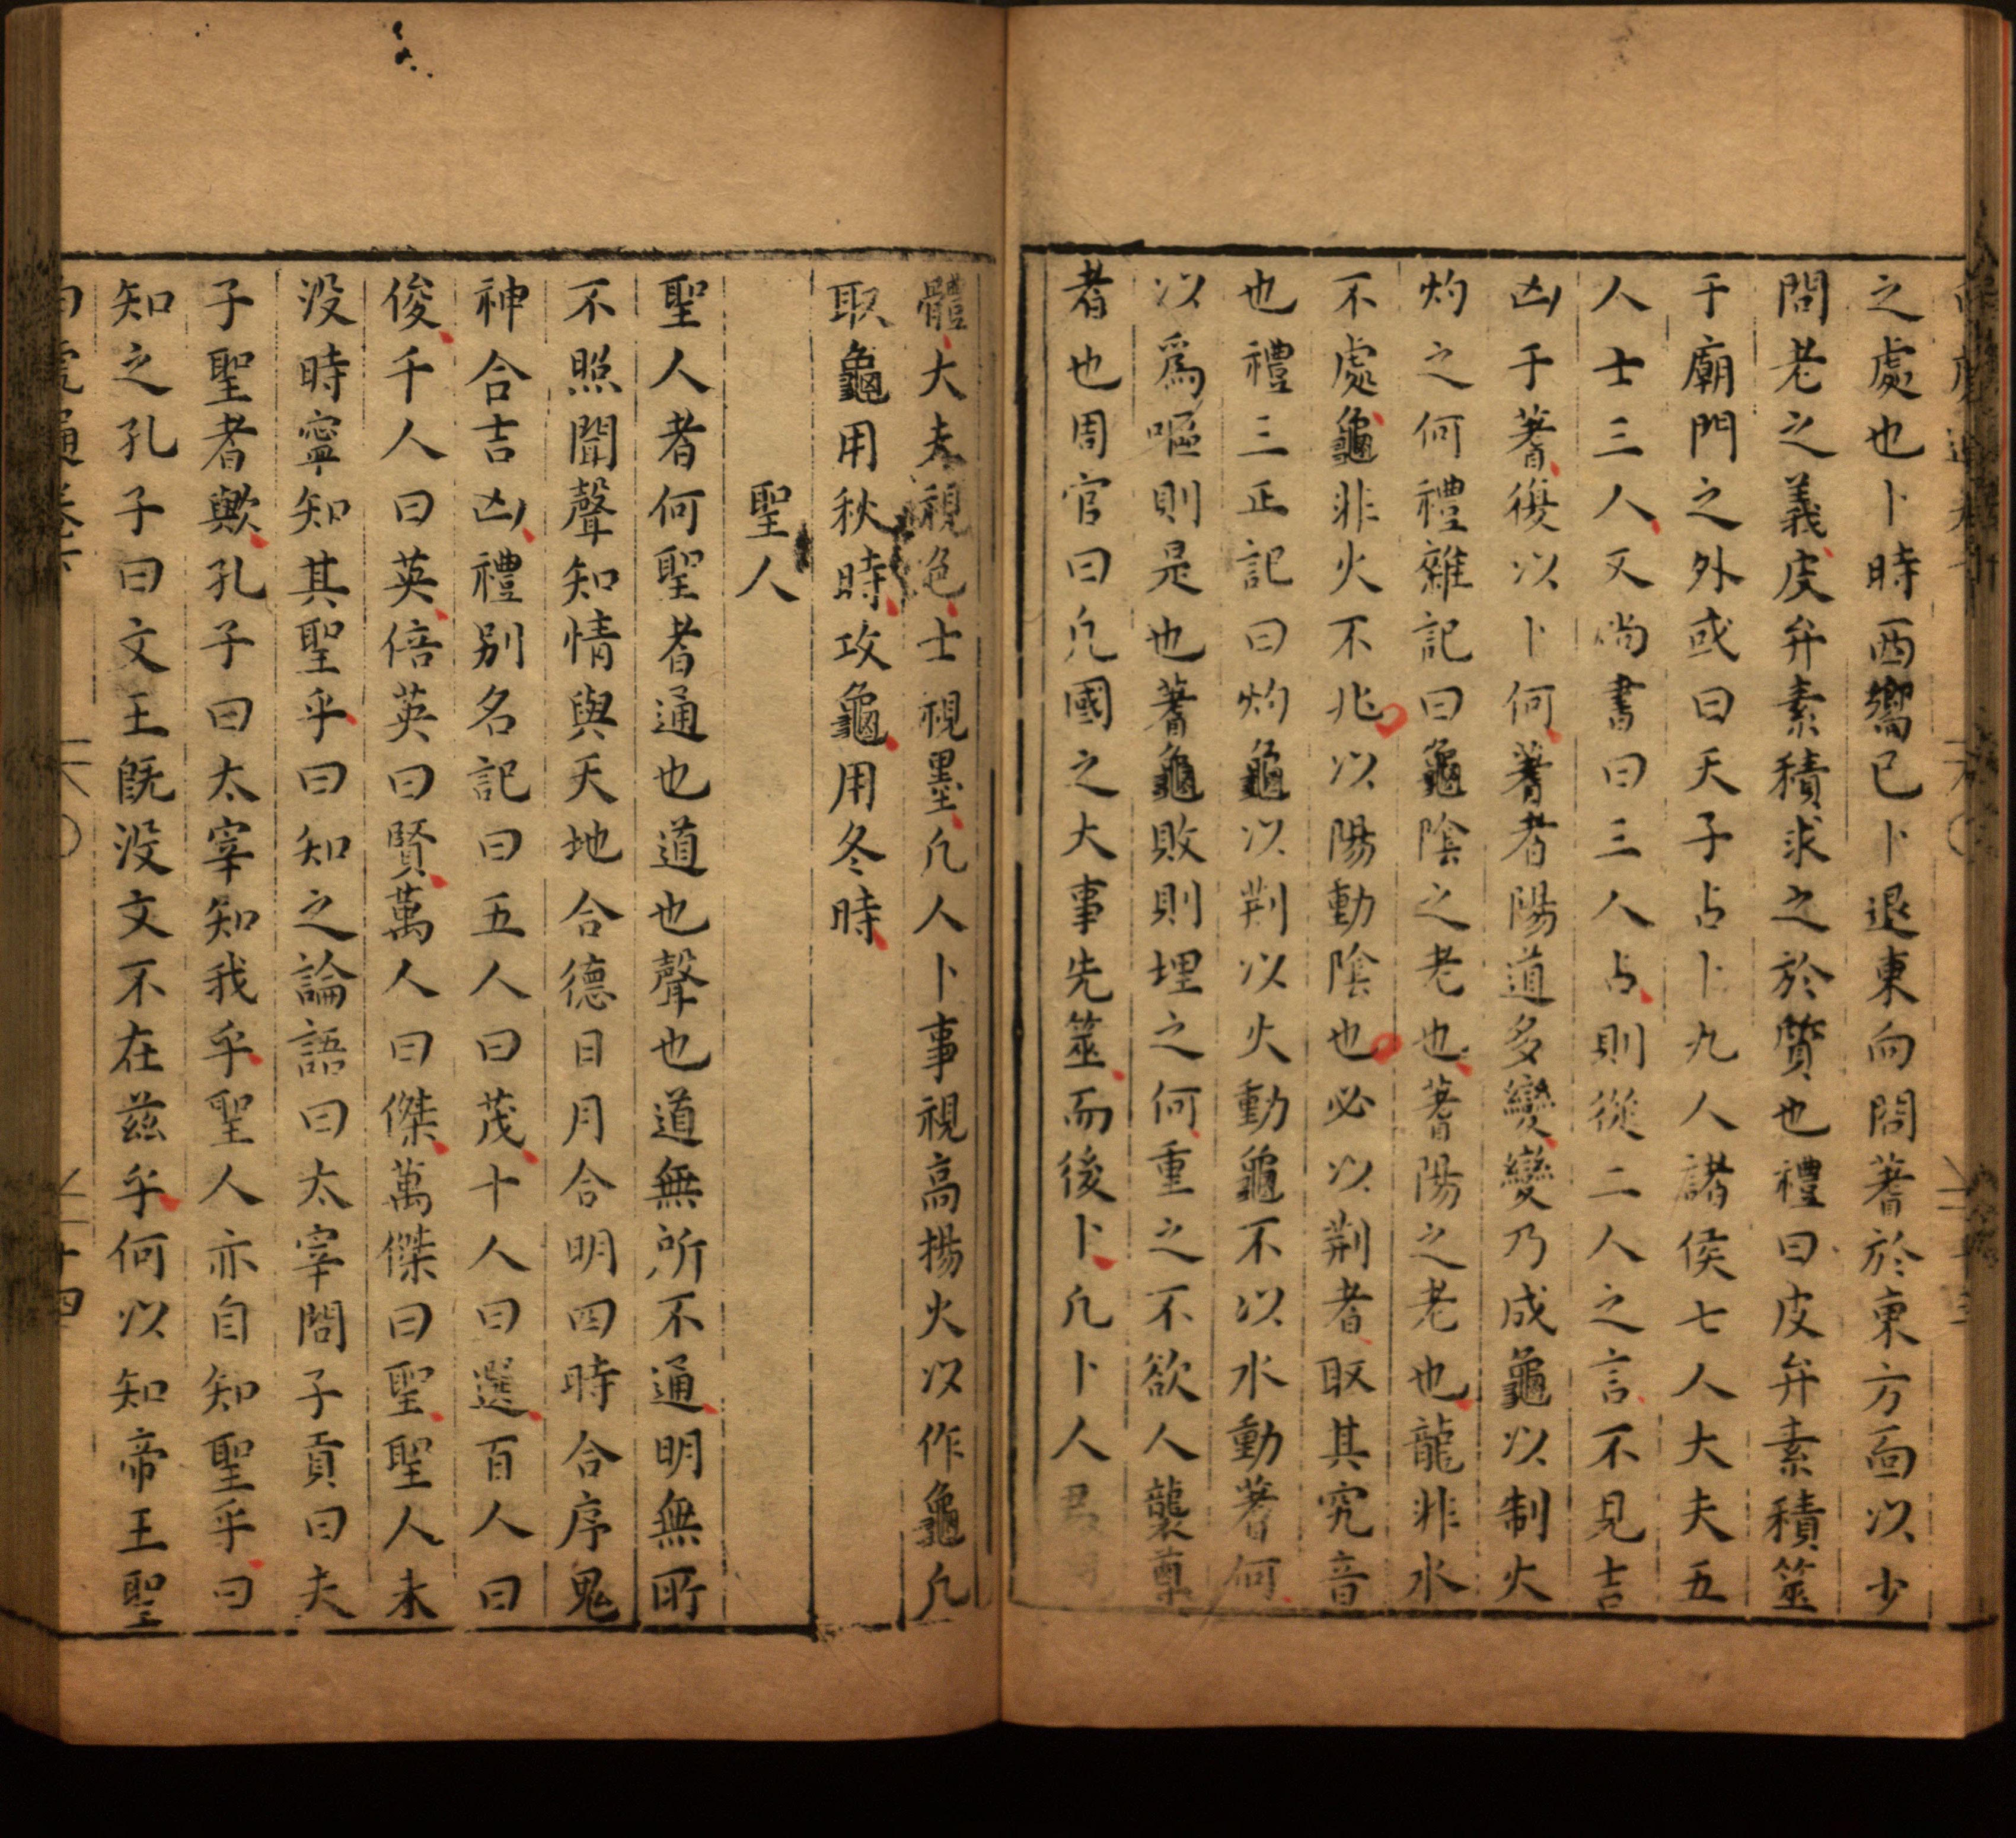 之處也卜時西嚮已卜退東向問蓍於東方面以少
問老之義皮弁素積求之於質也禮曰皮弁素積筮
于廟門之外或曰天子占卜九人諸侯七人大夫五
人士三人又尚書曰三人占則從二人之言不見吉
凶于蓍復以卜何蓍者陽道多變變乃成龜以制火
灼之何禮雜記曰龜陰之老也蓍陽之老也龍非水
不處龜非火不兆以陽動陰也必以荆者取其究音
也禮三正記曰灼龜以荆以火動龜不以水動蓍何
以爲嘔則是也蓍龜敗則埋之何重之不欲人襲尊
者也周官曰凡國之大事先筮而後卜凡卜人君
體大夫視色士視墨凡人卜事視高揚火以作龜凡
取龜用秋時攻龜用冬時
聖人
聖人者何聖者通也道也聲也道無所不通明無所
不照聞聲知情與天地合德日月合明四時合序鬼
神合吉凶禮別名記曰五人曰茂十人曰選百人曰
俊千人曰英倍英曰賢萬人曰傑萬傑曰聖聖人未
沒時寧知其聖乎曰知之論語曰太宰問子貢曰夫
子聖者歟孔子曰太宰知我乎聖人亦自知聖乎曰
知之孔子曰文王旣沒文不在茲乎何以知帝王聖